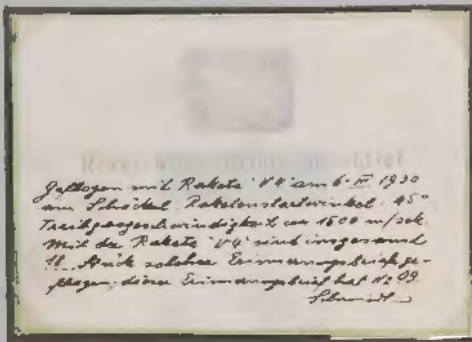 Geflogen mit Rakete "V4" am 6. III 1930
am Schöckel. Raketenstartwinkel 45°
Treibgasgeschwindigkeit ca 1600 m/sek.
Mit der Rakete "V4" sind insgesamt
Stück solcher Erinnerungsbriefe ge-
flogen, dieser Erinnerungsbrief hat No 09
Schmidl